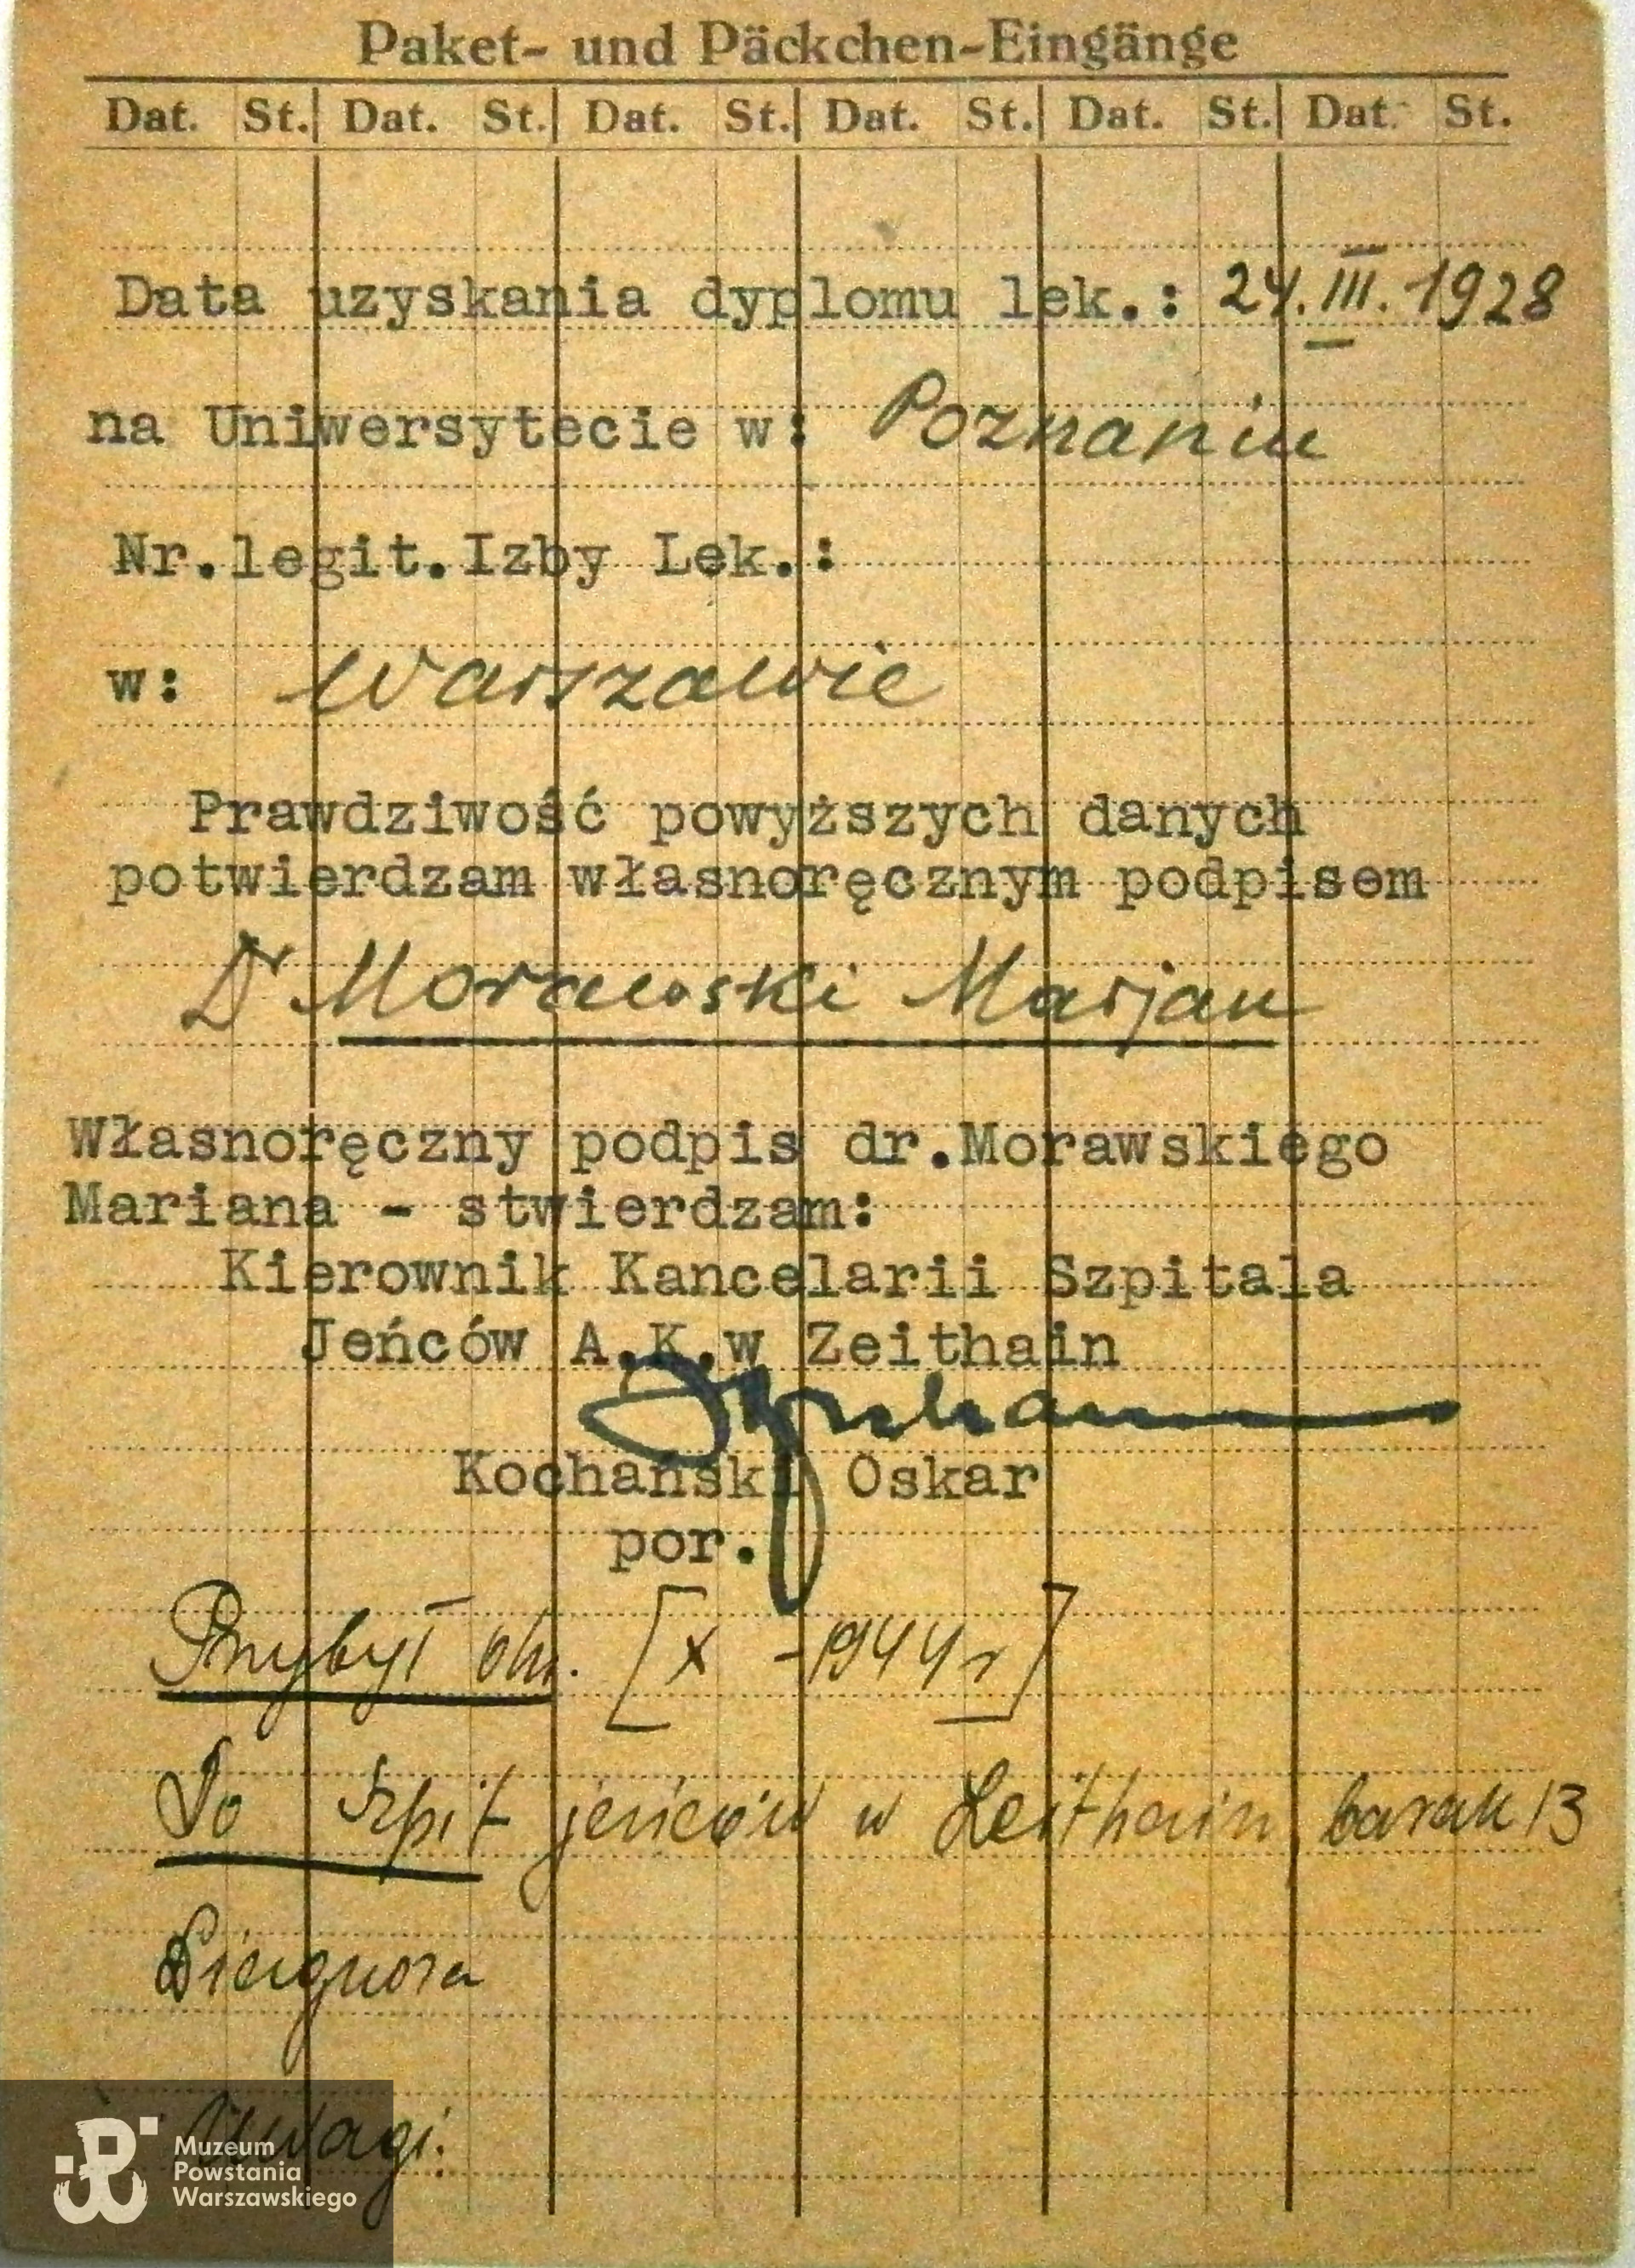 Paket- und Päckchen-Eingänge
Dat. St. Dat. St. Dat. St. Dat. St. Dat. St. Dat. St.
Data uzyskania dyplomu lek.: 24.III.1928
na Uniwersytecie w: Poznaniu
Nr.legit.Izby Lek.:
w: Warszawie
Prawdziwość powyższych danych
potwierdzam własnoręcznym podpisem
Dr Morawski Marjan
Własnoręczny podpis dr.Morawskiego
Mariana - stwierdzam:
Kierownik Kancelarii Szpitala
Jeńców A.K.w Zeithain
Kochański Oskar
por.
Przybył [X -1944r]
Do Szpit jeńców w Zeithain barak 13
Diagnoza
Uwagi:
Muzeum
Powstania
Warszawskiego